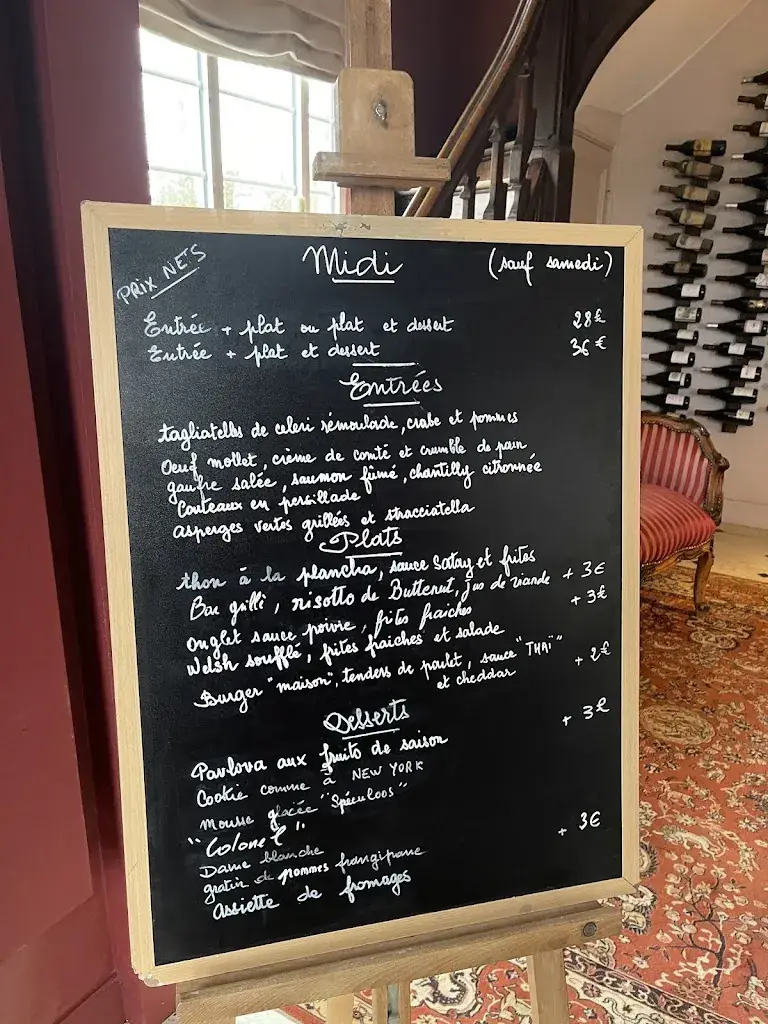 PRIX NETS
Midi
(sauf samedi)
Entrée + plat ou plat et dessert 28€
Entrée + plat et dessert 36€
Entrées
tagliatelles de celeri rémoulade, crabe et pommes
Oeuf mollet, crème de comté et crumble de pain
gaufre salée, saumon fûmé, chantilly citronnée
Couteaux en persillade
asperges vertes grillées et stracciatella
Plats
thon à la plancha, sauce Satay et frites
Bar grillé, risotto de Butternut, jus de viande + 3€
onglet sauce poivre, frites fraiches + 3€
Welsh soufflé, frites fraiches et salade
Burger "maison", tenders de poulet, sauce "THAÏ" + 2€
et cheddar
Desserts
+ 3€
Pavlova aux fruits de saison
Cookie comme à NEW YORK
Mousse glacée "Spéculoos"
"Colonel" + 3€
Dame blanche
gratin de pommes frangipane
Assiette de fromages